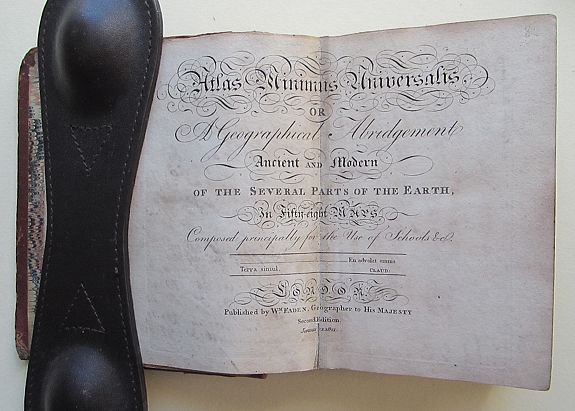 Atlas Minimus Universalis,
OR
A Geographical Abridgement
Ancient AND Modern
OF THE SEVERAL PARTS OF THE EARTH,
In Fifty-eight MAPS
Composed principally for the Use of Schools &c.
En advolat omnis
Terra simul.
CLAUD:
LONDON
Published by Wm. FADEN, Geographer to HIS MAJESTY
Second Edition